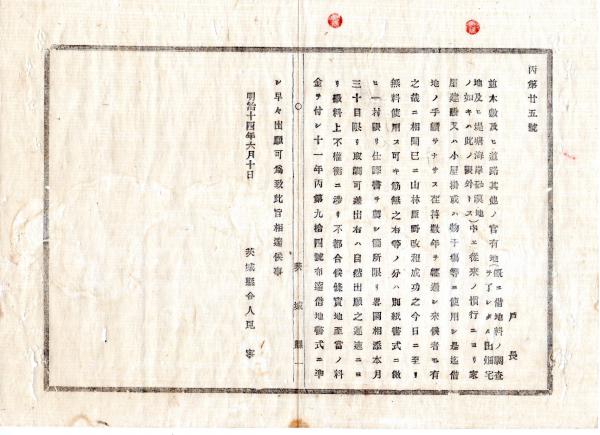 丙第廿五號
戸長
並木敷及ヒ道路其他ノ官有地(既ニ借地料ノ調査ヲ了シタル田畑宅
地及ヒ堤塘海岸砂漠地ノ如キハ此ノ限外トス)中ニ従來ノ慣行ニヨリ家
屋建設又ハ小屋掛或ハ物干場等ニ使用シ是迄借
地ノ手續サナサス在苒數年ヲ經過シ來候者モ有
之哉ニ相聞已ニ山林原野改租成功之今日ニ至リ
無料使用ス可キ筋無之右等ノ分ハ別紙書式ニ倣
ヒ一村限リ仕譯書ヲ製シ箇所限リ畧圖相添本月
三十日限リ取調可差出右ハ自然出願之遲速ニヨ
リ徴料上不權衡ニ渉リ不都合候條實地至當ノ料
金ヲ付シ十一年丙第九拾四號布達借地書式ニ準
茨城縣
シ早々出願可爲致此旨相達候事
明治十四年六月十日
茨城縣令人見寧